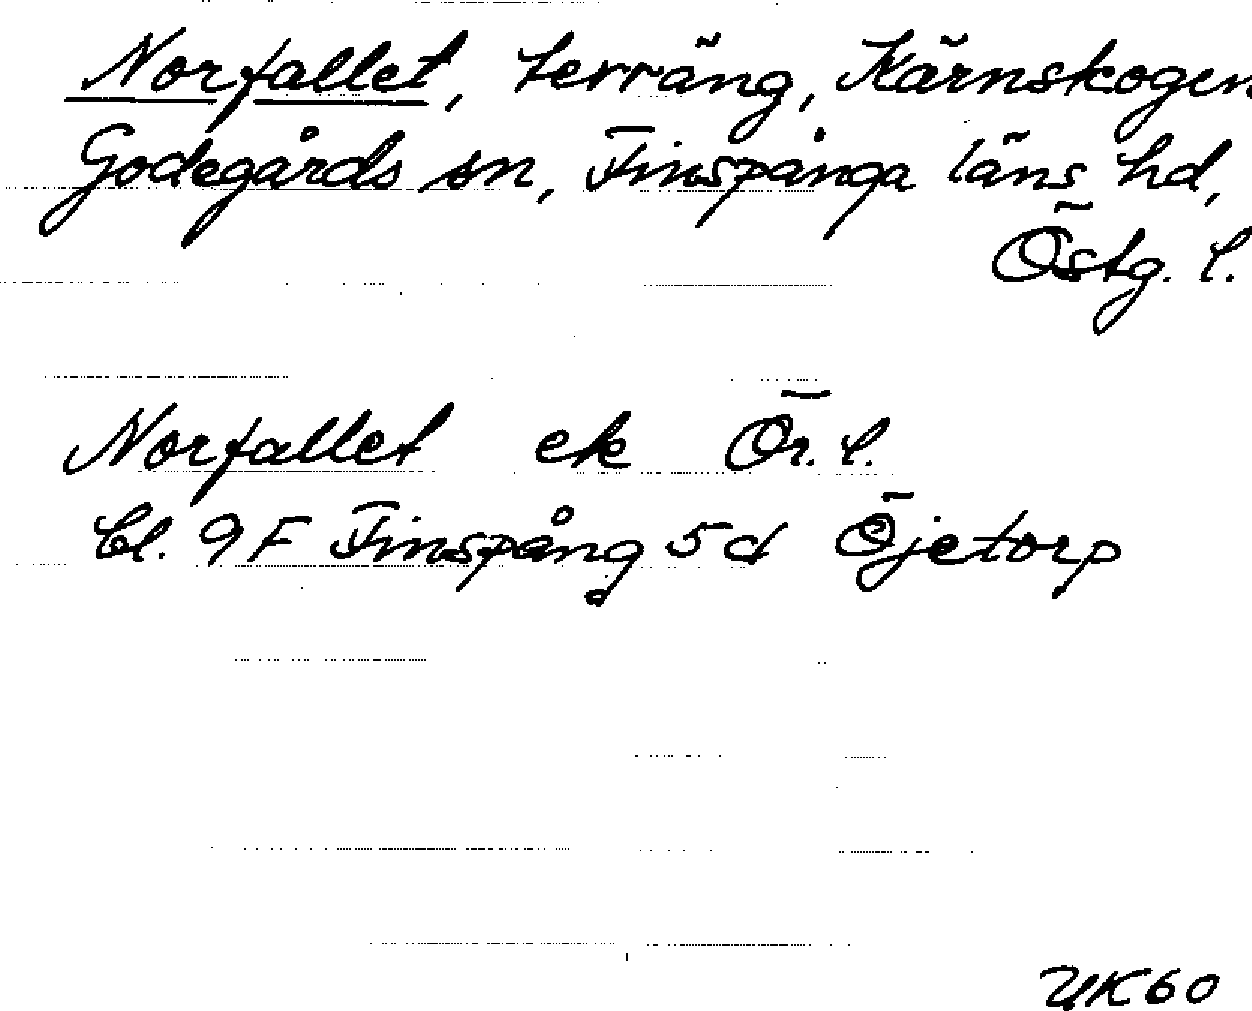 Norfallet, terräng, Kärnskogen
Godegårds sn, Finspånga läns hd,
Östg. l.
Norfallet ek Ör. l.
Bl. 9 F Finspång 5 d Öjetorp
UK 60